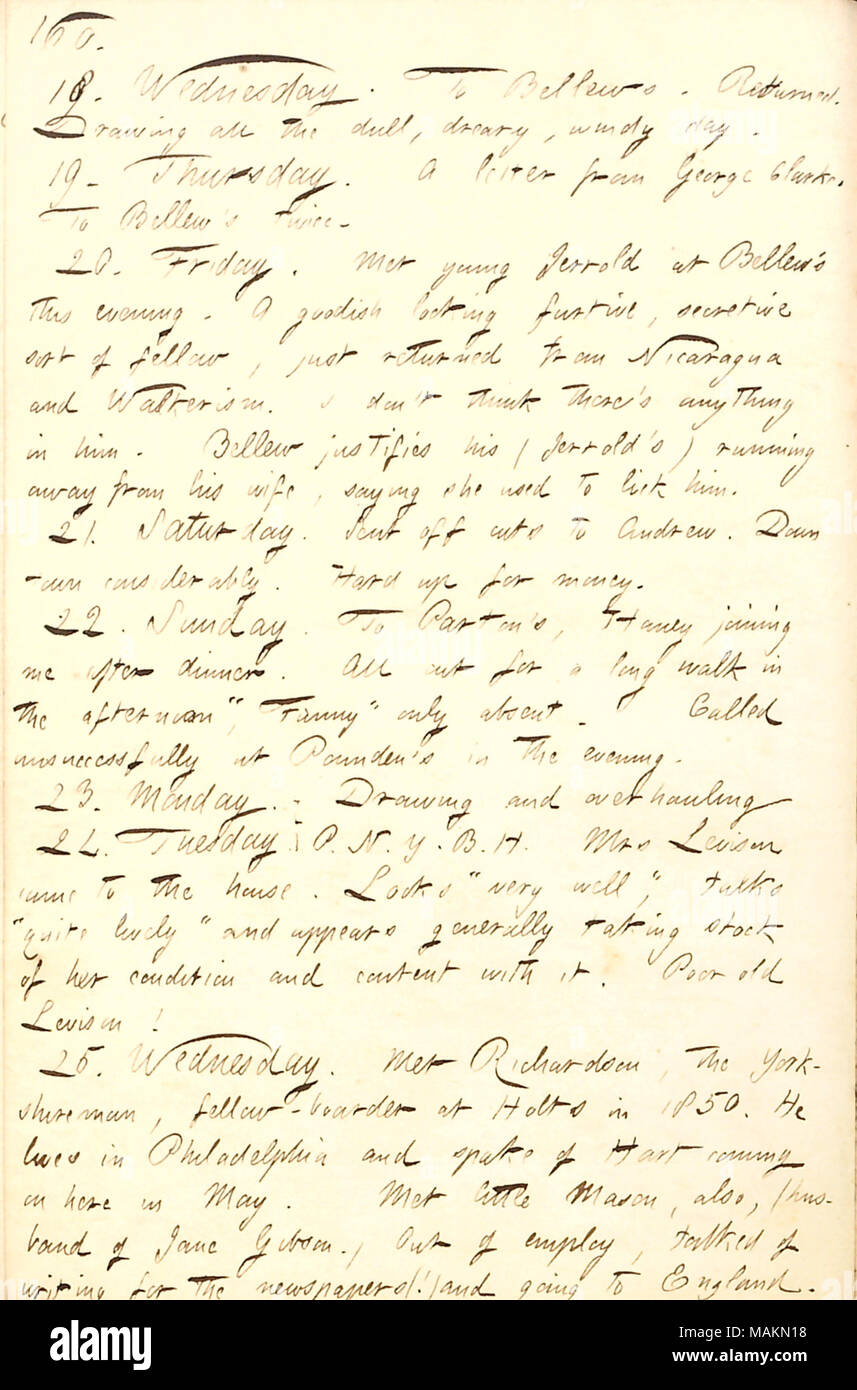 160.
18. Wednesday. To Bellew's. Returned.
Drawing all the dull, dreary, windy day.
19. Thursday. A letter from George Clarke.
To Bellew's twice.
20. Friday. Met young Jerrold at Bellew's
this evening. A goodish looking furtive, secretive
sort of fellow, just returned from Nicaragua
and Walkerism. I don't think there's anything
in him. Bellew justifies his (Jerrold's) running
away from his wife, saying she used to lick him.
21. Saturday. Sent off cuts to Andrew. Down
-town considerably. Hard up for money.
22. Sunday. To Parton's, Haney joining
me after dinner. All out for a long walk in
the afternoon, "Fanny" only absent. Called
unsuccessfully at Pounden's in the evening.
23. Monday. Drawing and overhauling
24. Tuesday. P. N. Y. B. H. Mrs Levison
came to the house. Looks "very well," talks
"quite lively" and appears generally taking stock
of her condition and content with it. Poor old
Levison!
25. Wednesday. Met Richardson, the York-
shireman, fellow-boarder at Holts in 1850. He
lives in Philadelphia and spoke of Hart coming
on here in May. Met little Mason, also, (hus-
band of Jane Gibson.) Out of employ, talked of
writing for the newspapers(!) and going to England.
alamy
Image ID: MAKN18
www.alamy.com